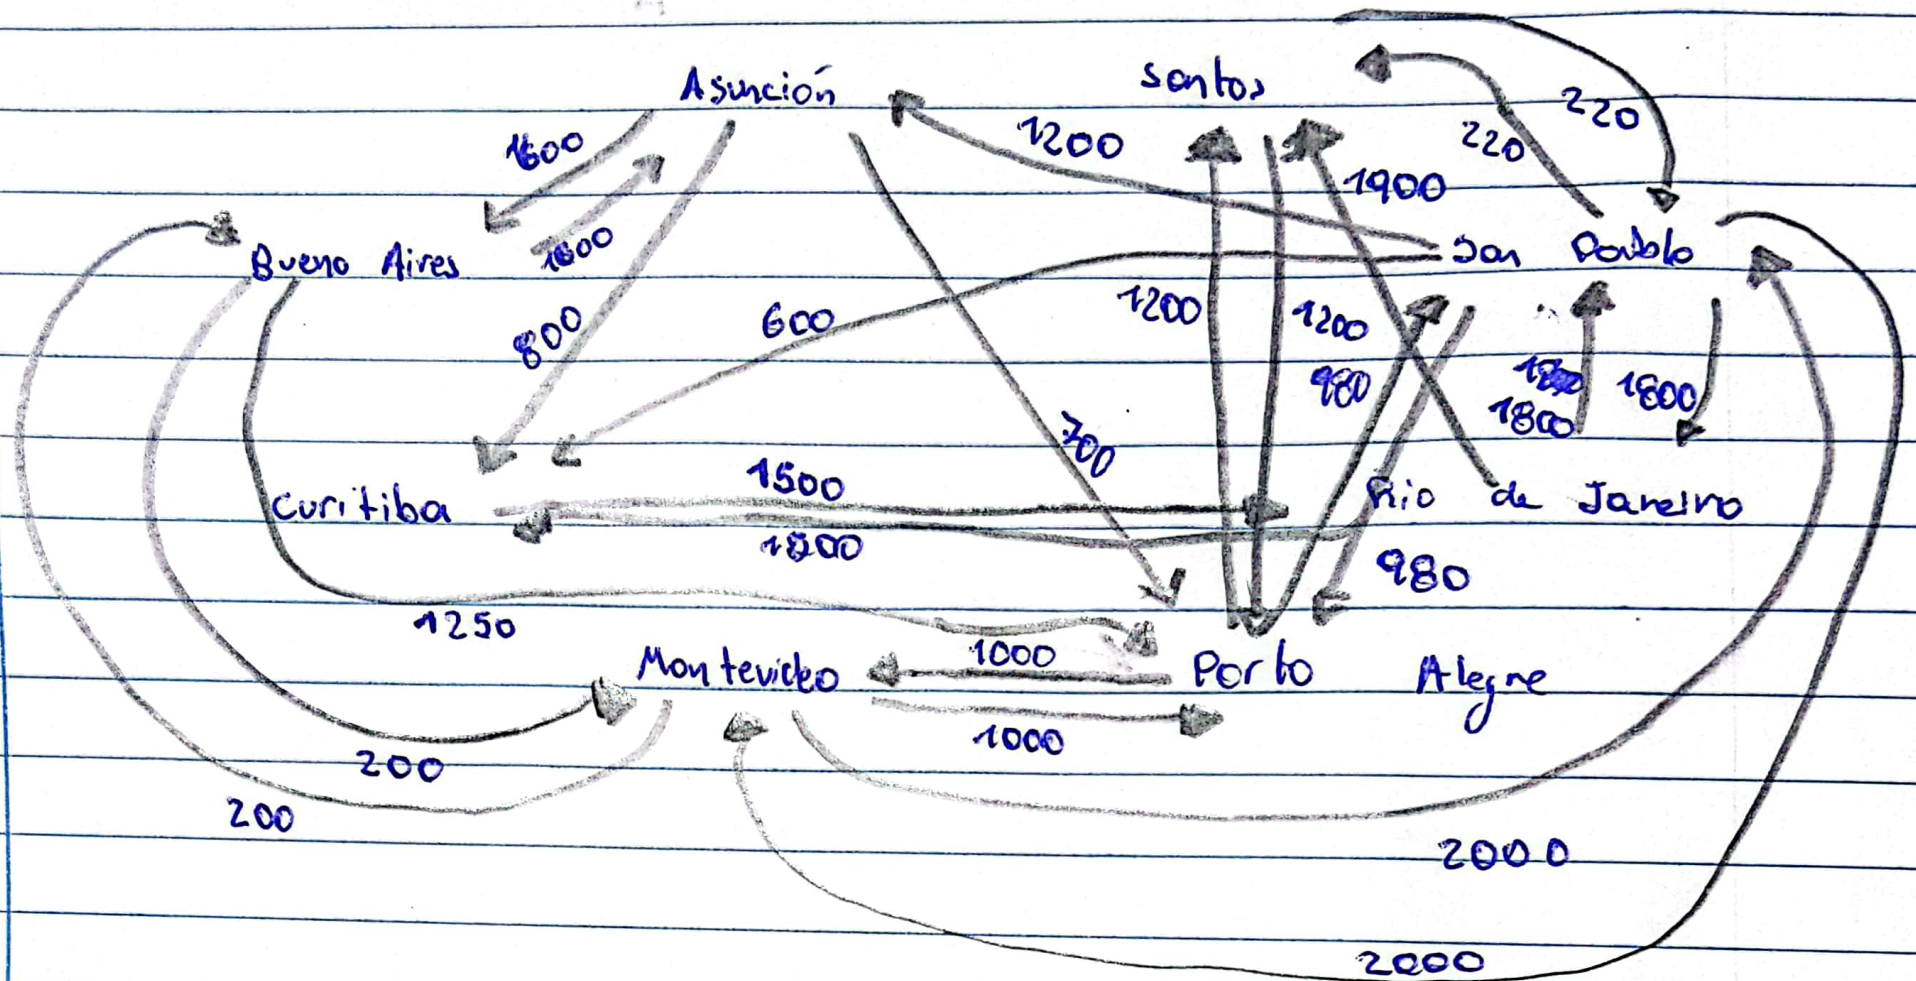 Asunción santos
220
220
1600
1200
1900
1600
Bueno Aires San Pablo
1200
1200
600
800
980
1800
1800
700
1500
curitiba Rio de Janeiro
980
1250
1000
Montevideo Porto Alegre
1000
200
200
2000
2000